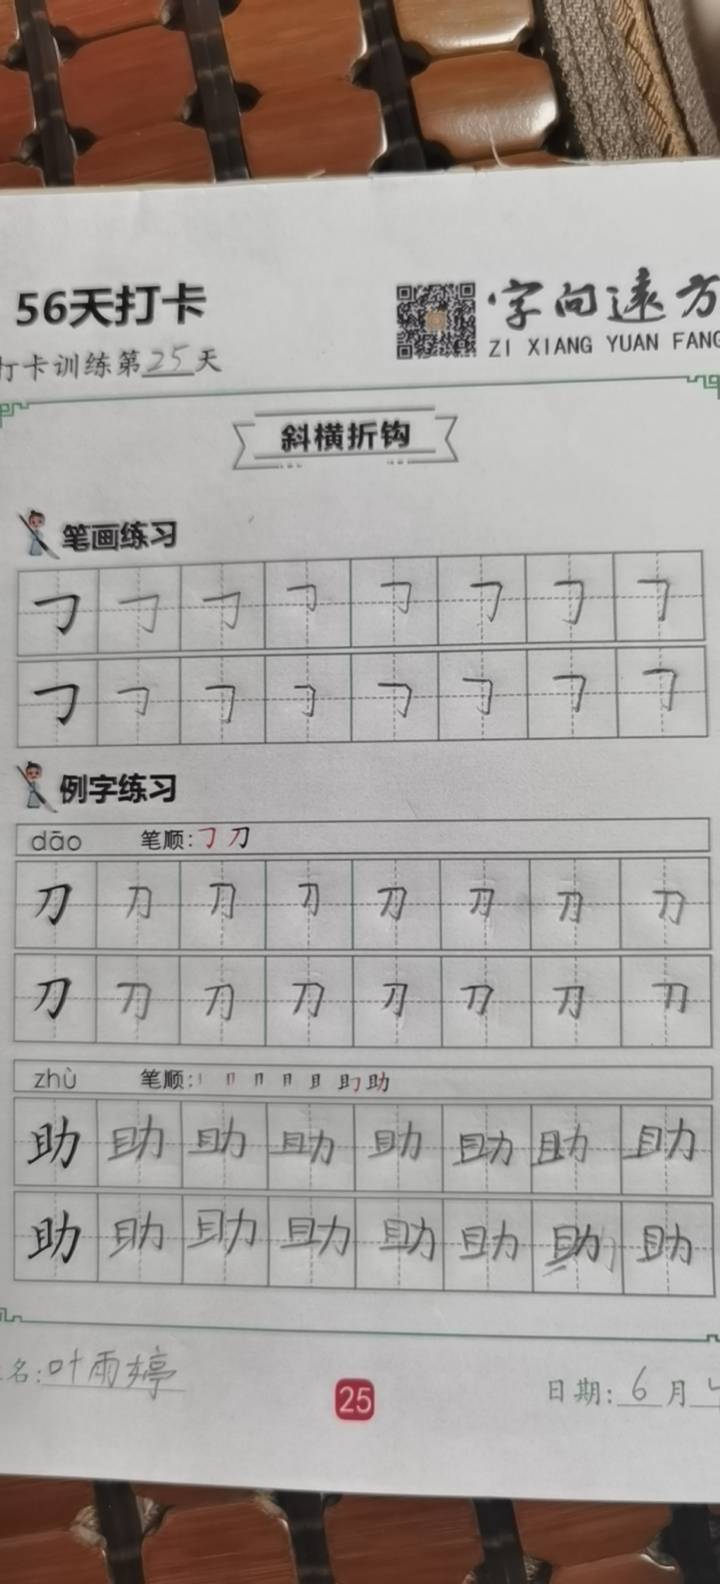 56天打卡
字向远方
打卡训练第25天
ZI XIANG YUAN FANG
斜横折钩
笔画练习
㇆ ㇆ ㇆ ㇆ ㇆ ㇆ ㇆ ㇆
㇆ ㇆ ㇆ ㇆ ㇆ ㇆ ㇆ ㇆
例字练习
dāo 笔顺:㇆ 刀
刀 刀 刀 刀 刀 刀 刀 刀
刀 刀 刀 刀 刀 刀 刀 刀
zhù 笔顺: 助
助 助 助 助 助 助 助 助
助 助 助 助 助 助 助 助
名:叶雨婷
25
日期:6月